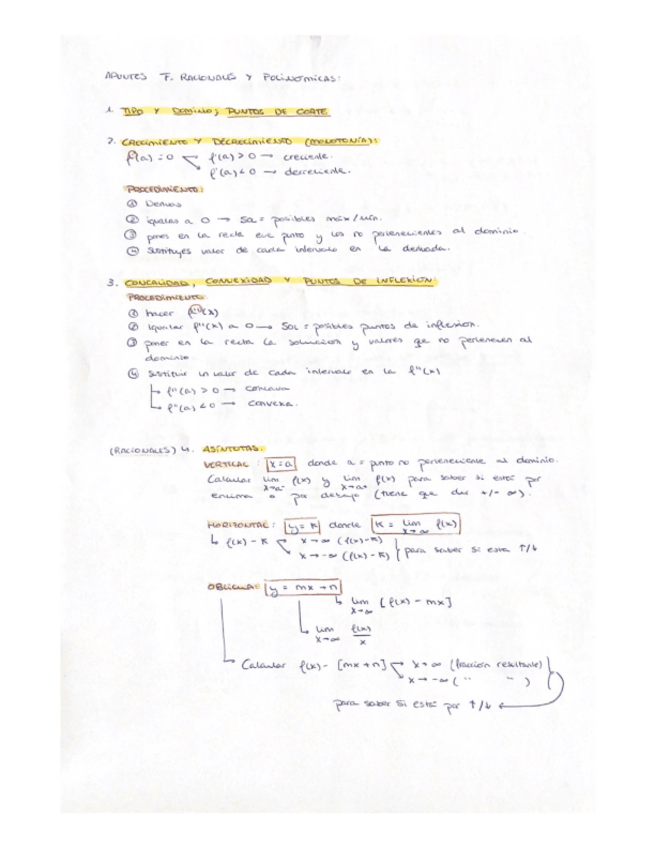 APUNTES F. RACIONALES Y POLINÓMICAS:
1. TIPO Y DOMINIO; PUNTOS DE CORTE
2. CRECIMIENTO Y DECRECIMIENTO (MONOTONÍA):
f'(a)=0 f'(a)>0 → creciente.
f'(a)<0 → decreciente.
PROCEDIMIENTO:
① Derivas
② igualas a 0 → Sol = posibles máx/mín.
③ pones en la recta ese punto y los no pertenecientes al dominio.
④ Sustituyes valor de cada intervalo en la derivada.
3. CONCAVIDAD, CONVEXIDAD Y PUNTOS DE INFLEXIÓN
PROCEDIMIENTO
① hacer f''(x)
② Igualar f''(x) a 0 → Sol = posibles puntos de inflexión.
③ poner en la recta la solución y valores que no pertenecen al
dominio
④ Sustituir un valor de cada intervalo en la f''(x)
f''(a) > 0 → cóncava
f''(a) < 0 → convexa.
(RACIONALES) 4. ASÍNTOTAS:
VERTICAL: x=a donde a = punto no perteneciente al dominio.
Calcular lim x→a⁻ f(x) y lim x→a⁺ f(x) para saber si está por
encima o por debajo (tiene que dar +/- ∞).
HORIZONTAL: y=K donde K = lim x→∞ f(x)
f(x)-K x→∞ (f(x)-K)
x→-∞ (f(x)-K) para saber si esta ↑/↓
OBLICUA: y = mx+n
lim x→∞ [f(x)-mx]
lim x→∞ f(x)/x
Calcular f(x)-[mx+n] x→∞ (fracción resultante)
x→-∞ ( " " )
para saber si está por ↑/↓